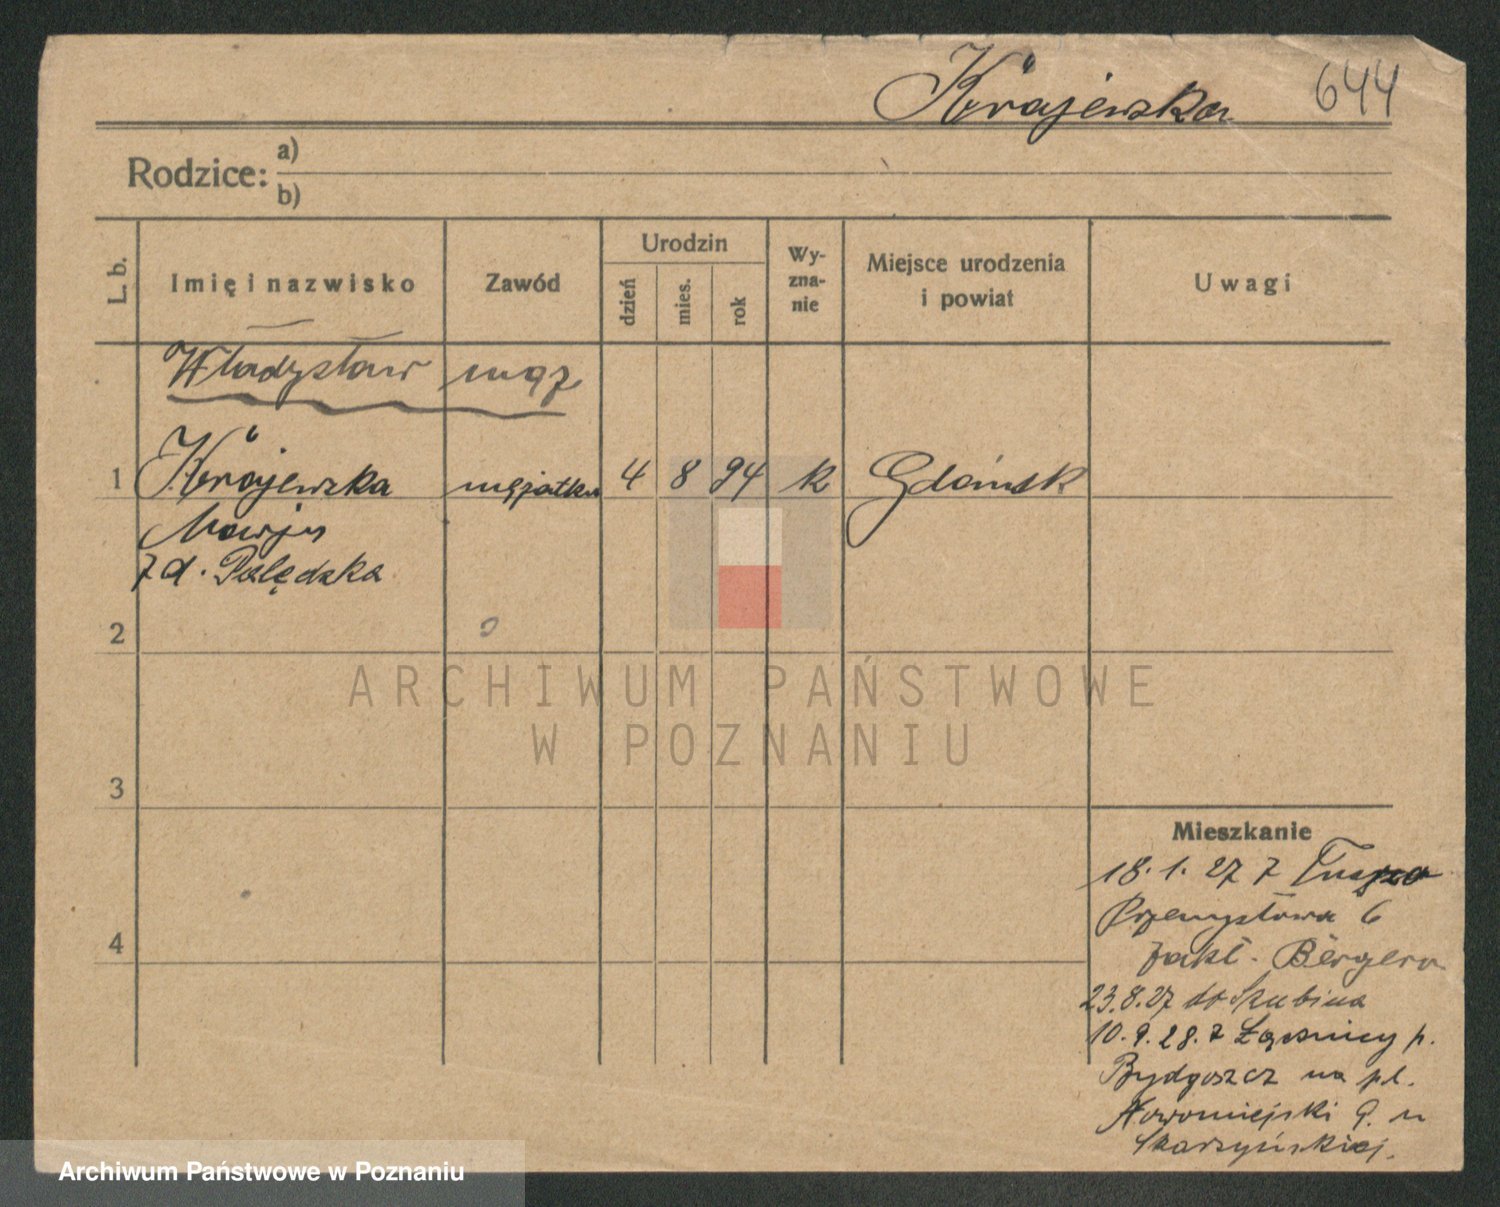 Krajewska 644
Rodzice: a)
b)
L. b.
Imię i nazwisko
Zawód
Urodzin
dzień
mies.
rok
Wy-
zna-
nie
Miejsce urodzenia
i powiat
Uwagi
Władysław mąż
1 Krajewska mężatka 4 8 94 k Gdańsk
Marja
z d. Palędzka
2
3
4
Mieszkanie
18. 1. 27 z
Przemysłowa 6
zakł. Bergera
23.8.27 do Szubina
10. 9. 28. z Łąsnicy p.
Bydgoszcz na pl.
Nowomiejski 9. u
Skarzyńskiej.
ARCHIWUM PAŃSTWOWE
W POZNANIU
Archiwum Państwowe w Poznaniu